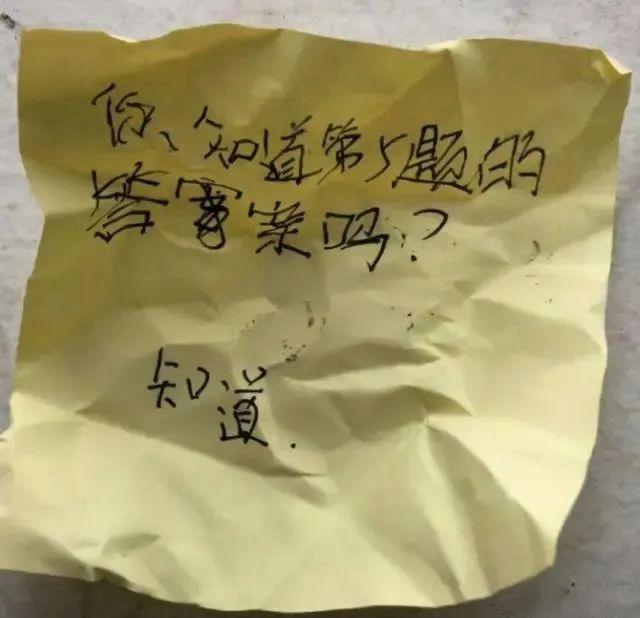 你知道第5题的
答案吗?
知道.